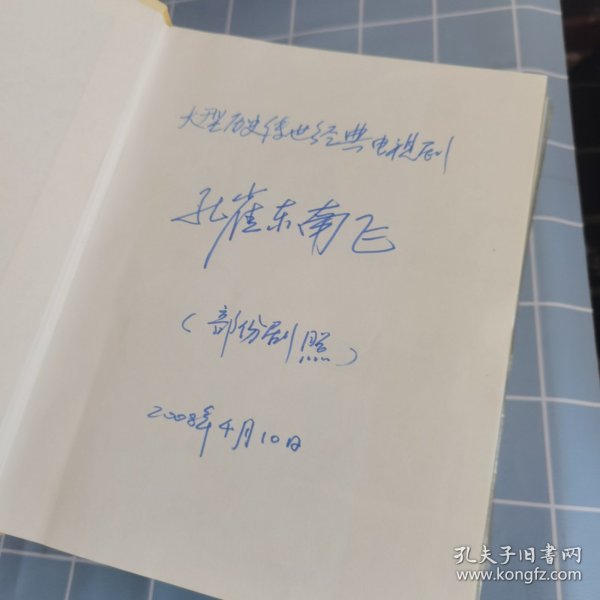 大型历史传世经典电视剧
孔雀东南飞
（部份剧照）
2008年4月10日
孔夫子旧书网
www.kongfz.com